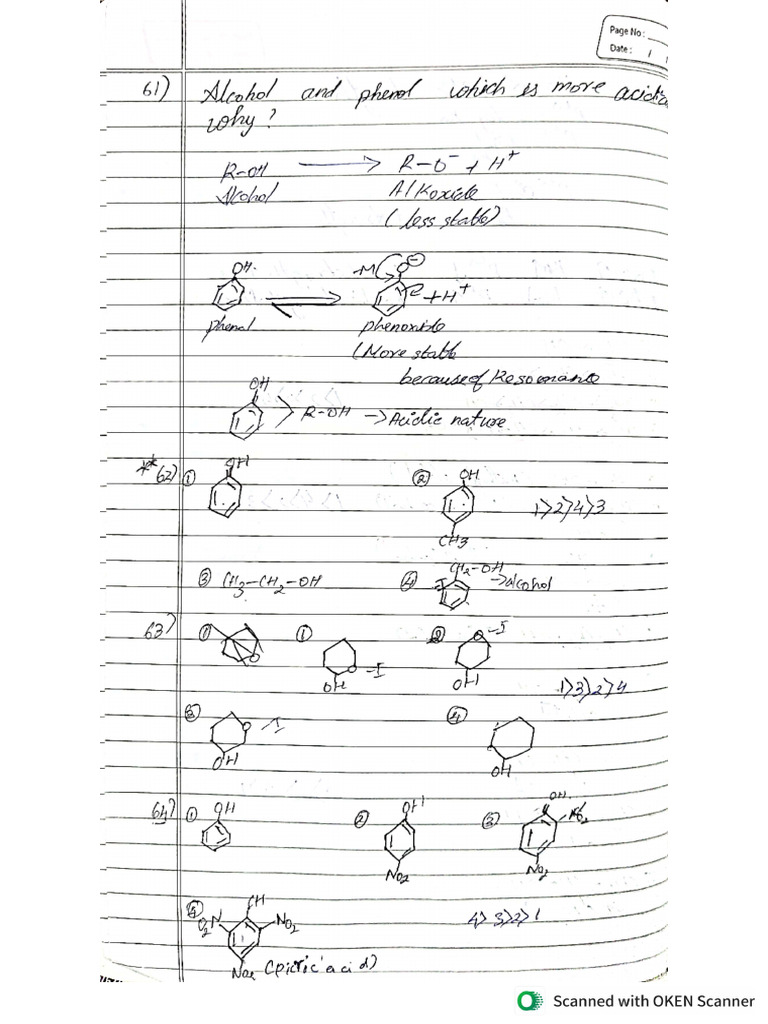 Page No:
Date: / /
61) Alcohol and phenol which is more acidic
why?
R-OH → R-O⁻ + H⁺
Alcohol Alkoxide
(less stable)
OH. +M O⊖
+ H⁺
phenol phenoxide
(More stable
because of Resonance
OH
> R-OH → Acidic nature
**62) ① OH ② OH
1>2>4>3
CH3
③ CH3-CH2-OH ④ CH2-OH → alcohol
-I
63) ① O ① O -I ② O -I
OH OH
1>3>2>4
③ O -I ④
OH OH
64) ① OH ② OH ③ OH. NO2
NO2 NO2
④ OH
O2N NO2 4>3>2>1
NO2 (picric acid)
Scanned with OKEN Scanner